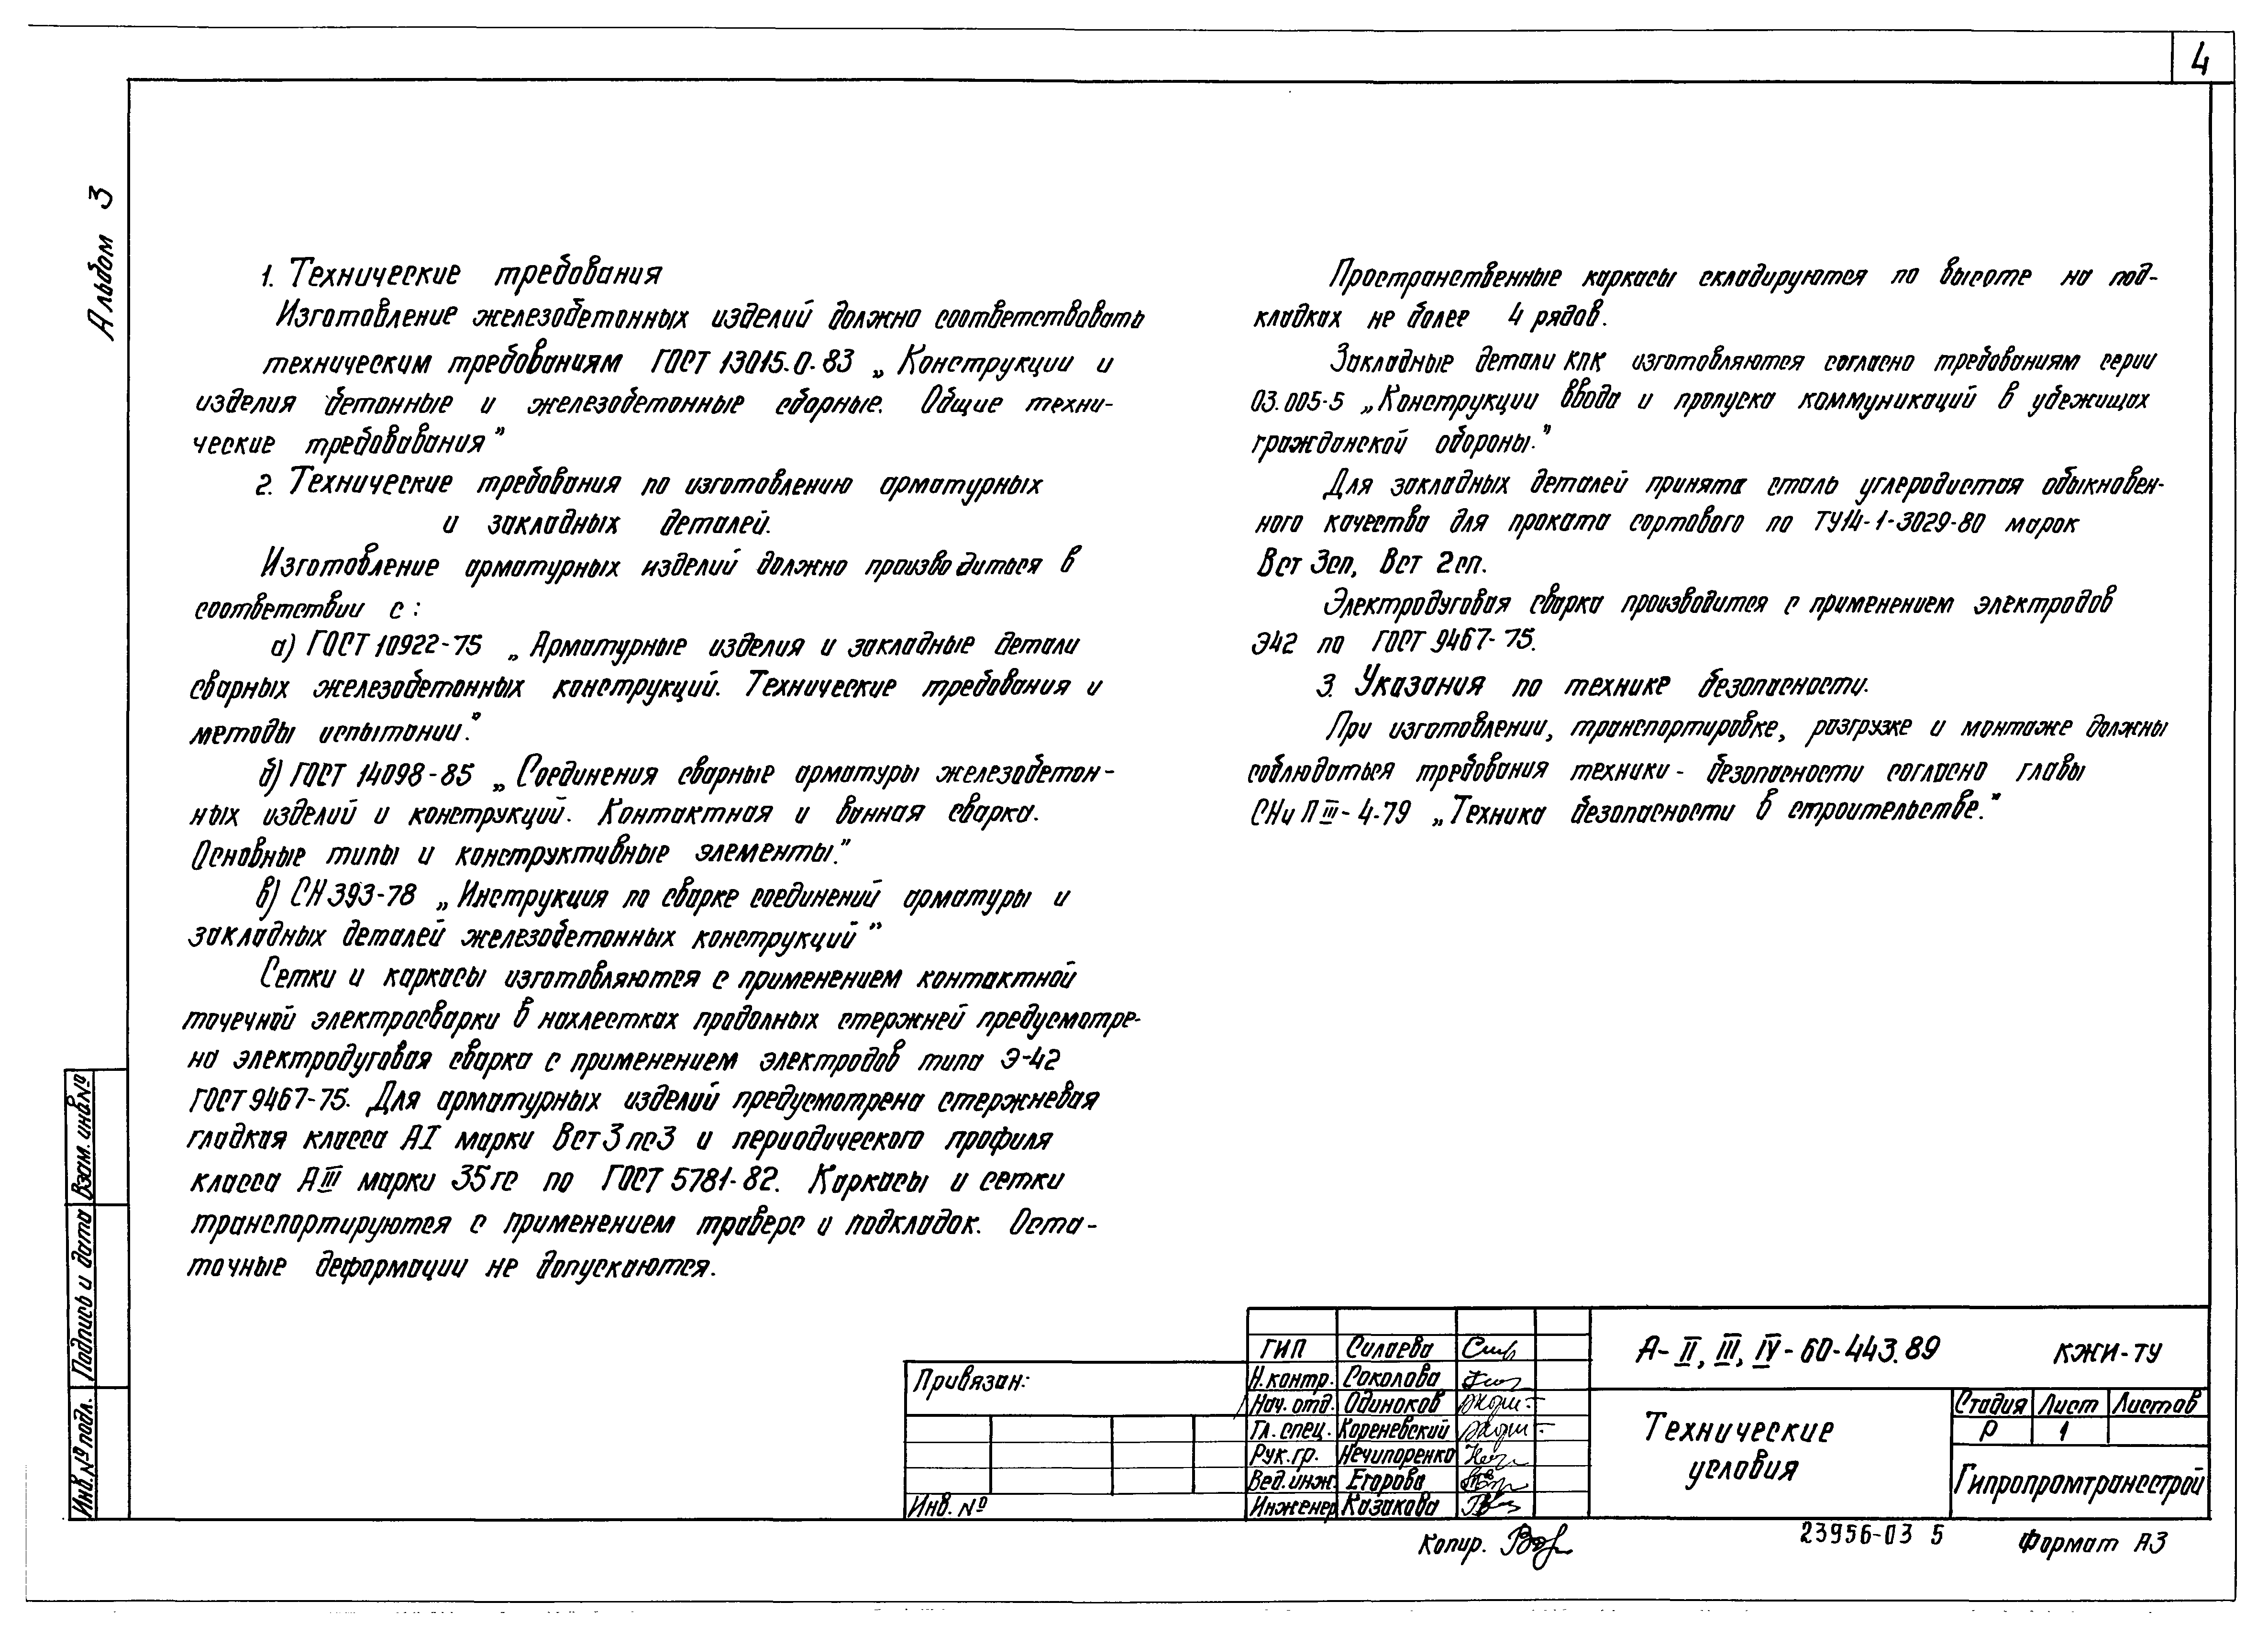 4
Альбом 3
1. Технические требования
Изготовление железобетонных изделий должно соответствовать
техническим требованиям ГОСТ 13015.0-83 „Конструкции и
изделия бетонные и железобетонные сборные. Общие техни-
ческие требовавания”
2. Технические требования по изготовлению арматурных
и закладных деталей.
Изготовление арматурных изделий должно производиться в
соответствии с:
а) ГОСТ 10922-75 „Арматурные изделия и закладные детали
сварных железобетонных конструкций. Технические требования и
методы испытании.”
б) ГОСТ 14098-85 „Соединения сварные арматуры железобетон-
ных изделий и конструкций. Контактная и ванная сварка.
Основные типы и конструктивные элементы.”
в) СН 393-78 „Инструкция по сварке соединений арматуры и
закладных деталей железобетонных конструкций”
Сетки и каркасы изготовляются с применением контактной
точечной электросварки в нахлестках продолных стержней предусмотре-
на электродуговая сварка с применением электродов типа Э-42
ГОСТ 9467-75. Для арматурных изделий предусмотрена стержневая
гладкая класса АI марки Вст3пс3 и периодического профиля
класса АIII марки 35гс по ГОСТ 5781-82. Каркасы и сетки
транспортируются с применением траверс и подкладок. Оста-
точные деформации не допускаются.
Пространственные каркасы складируются по высоте на под-
кладках не более 4 рядов.
Закладные детали КПК изготовляются согласно требованиям серии
03.005-5 „Конструкции ввода и пропуска коммуникаций в убежищах
гражданской обороны.”
Для закладных деталей принята сталь углеродистая обыкновен-
ного качества для проката сортового по ТУ14-1-3029-80 марок
Вст 3сп, Вст 2сп.
Электродуговая сварка производится с применением электродов
Э42 по ГОСТ 9467-75.
3. Указания по технике безопасности.
При изготовлении, транспортировке, разгрузке и монтаже должны
соблюдаться требования техники- безопасности согласно главы
СНиП III-4-79 „Техника безопасности в строительстве.”
Взам. инв.№
Подпись и дата
Инв. № подл.
Привязан:
Инв. №
ГИП Силаева
Н.контр. Соколова
Нач. отд. Одиноков
Гл. спец. Кореневский
Рук.гр. Нечипоренко
Вед.инж. Егорова
Инженер Казакова
А-II, III, IV-60-443.89 КЖИ-ТУ
Технические
условия
Стадия Лист Листов
Р 1
Гипропромтрансстрой
Копир.
23956-03 5
Формат А3